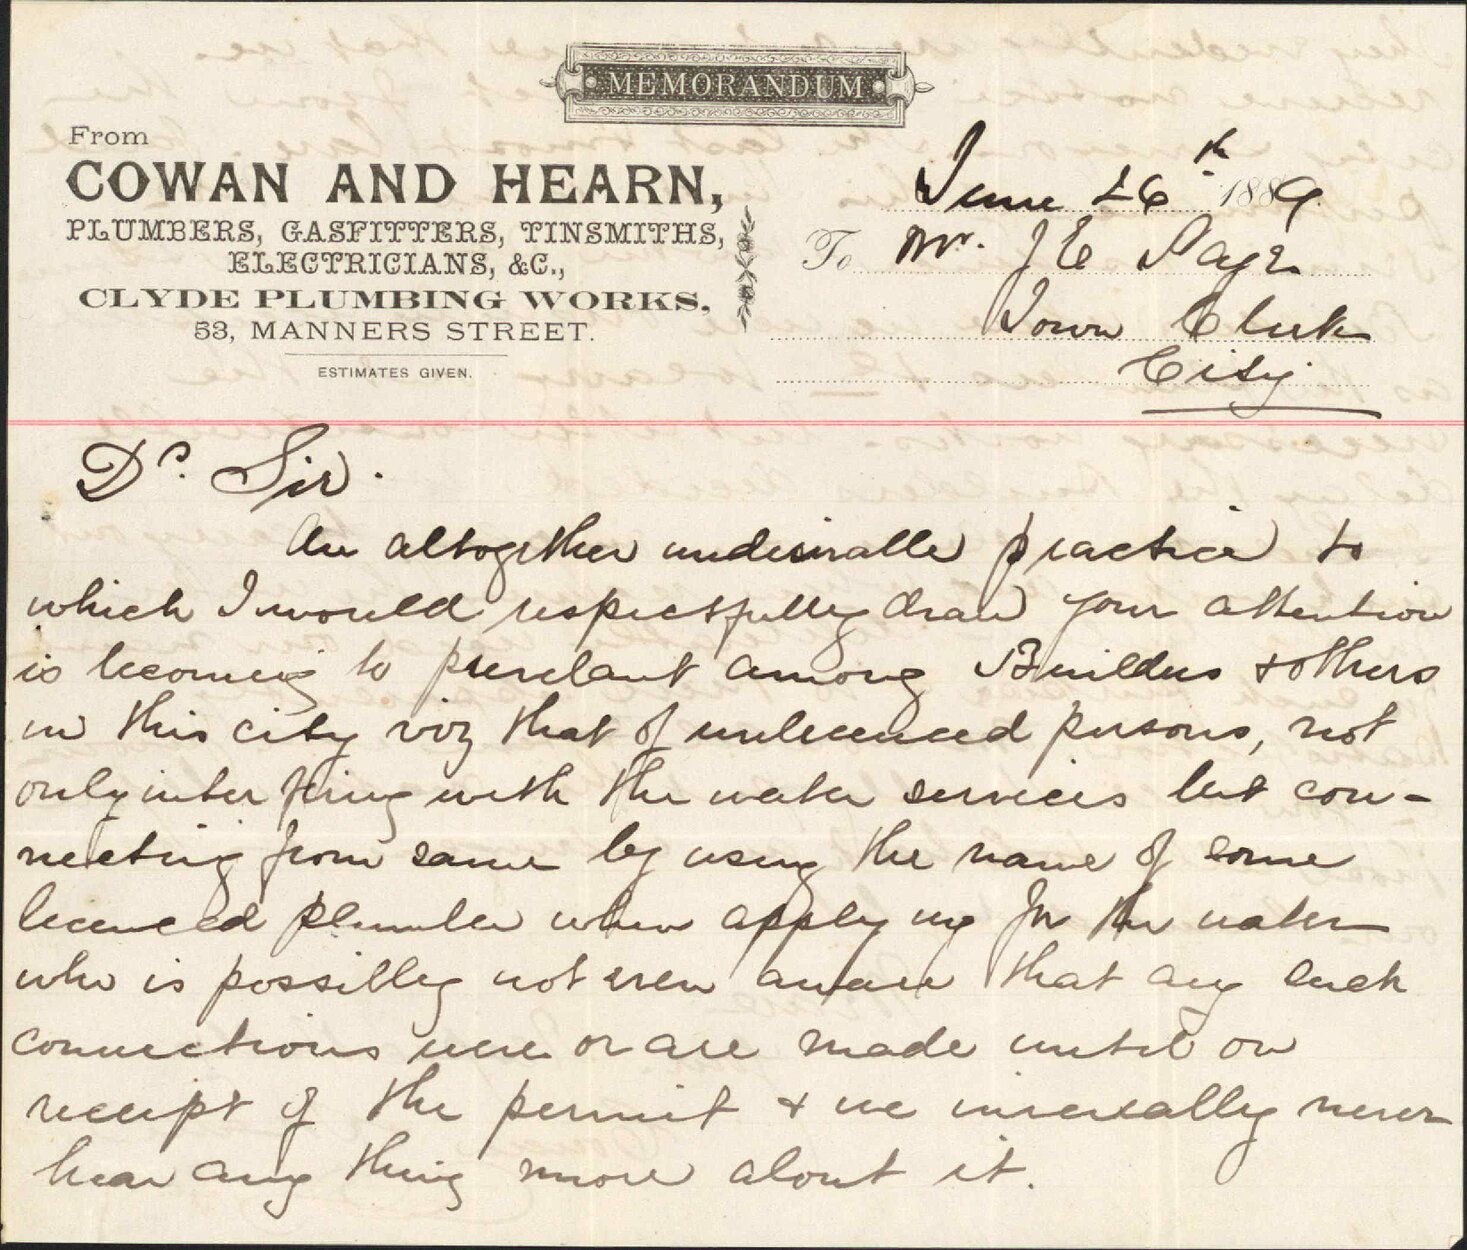 MEMORANDUM
From
COWAN AND HEARN,
PLUMBERS, GASFITTERS, TINSMITHS,
ELECTRICIANS, &C.,
CLYDE PLUMBING WORKS,
53, MANNERS STREET.
ESTIMATES GIVEN.
June 26th 1889
To Mr. J E Page
Town Clerk
City
Dr. Sir.
An altogether undesirable practice to
which I would respectfully draw your attention
is becoming to prevelant among Builders & others
in this city viz that of unlicenced persons, not
only interfering with the water services but con-
necting from same by using the name of some
licenced plumber when applying for the water
who is possibley not even aware that any such
connections were or are made until on
receipt of the permit & we invereably never
hear any thing more about it.